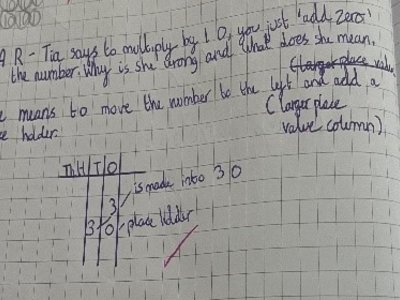 R - Tia says to multiply by 10, you just 'add zero'
the number. Why is she wrong and what does she mean.
(larger place value
means to move the number to the left and add a
(larger place
e holder.
value column)
Th H T O
3
is made into 30
3 0
place holder